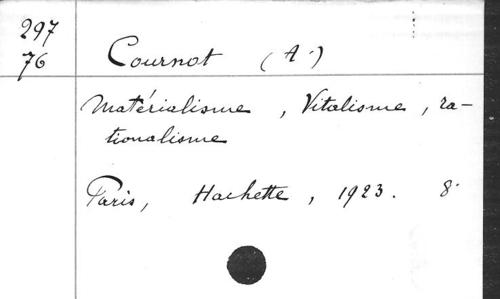 297
76
Cournot (A.)
Matérialisme, Vitalisme, ra-
tionalisme
Paris, Hachette, 1923. 8°